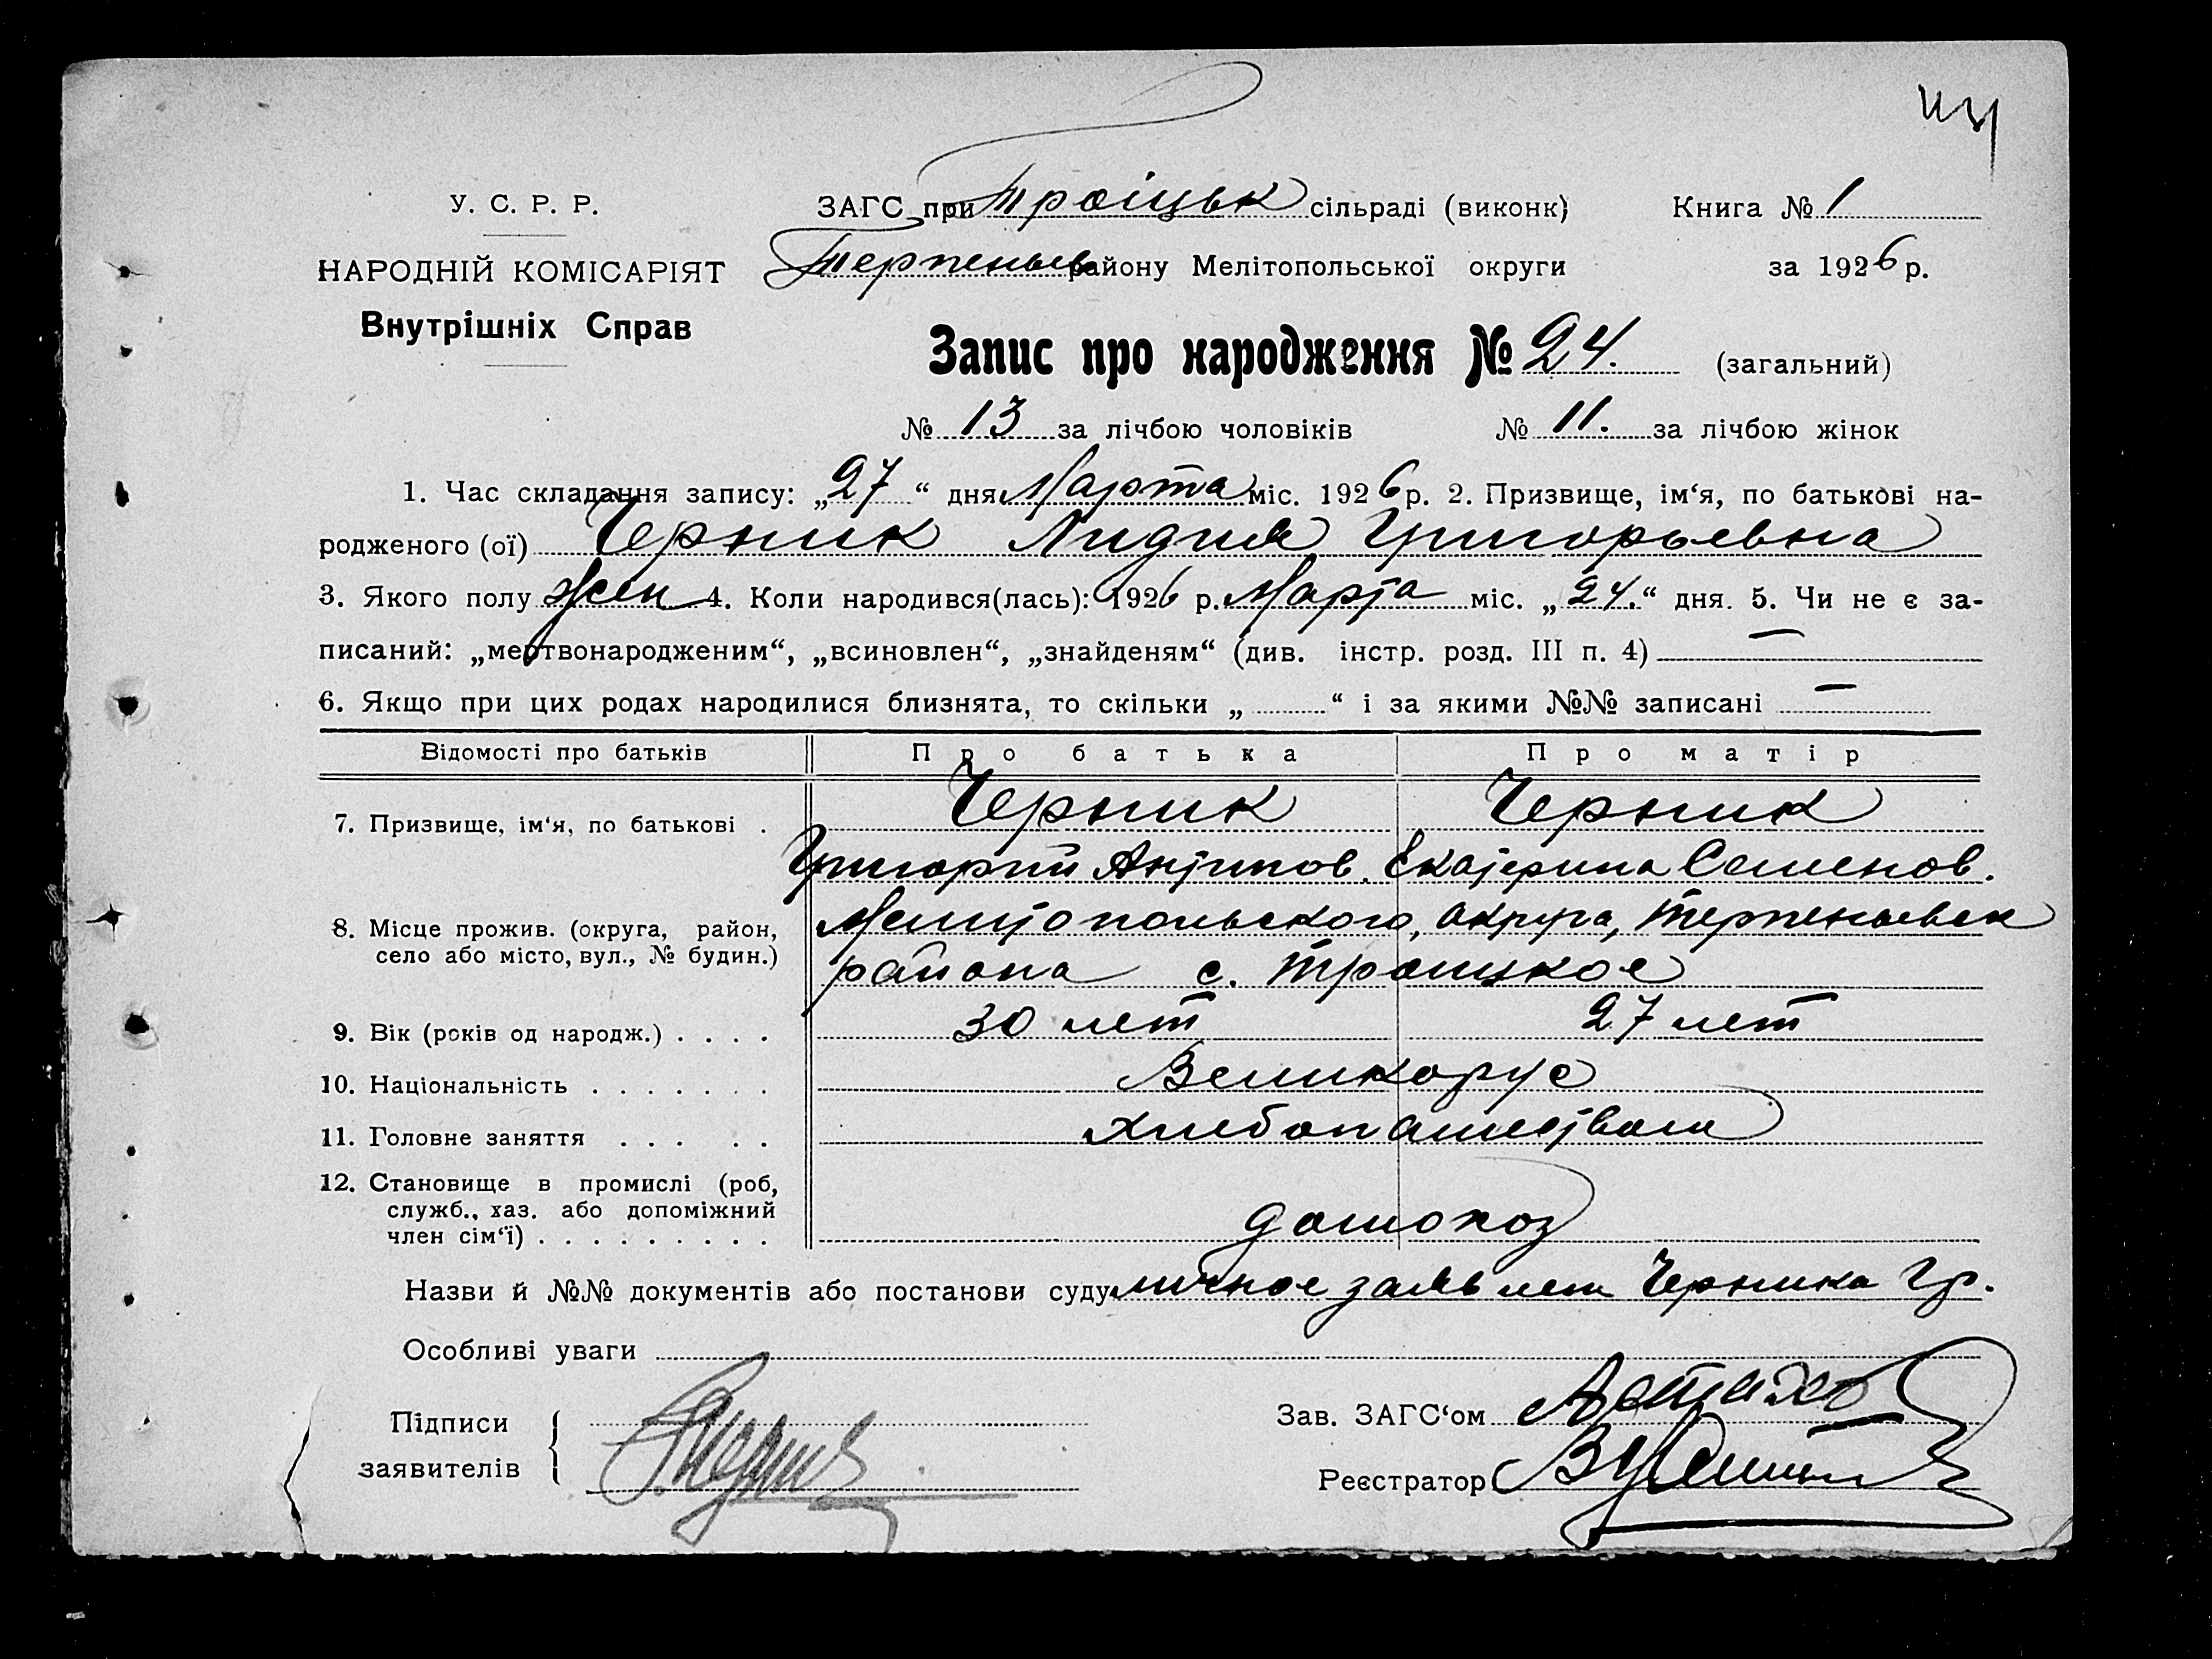 У. С. Р. Р.
НАРОДНІЙ КОМІСАРІЯТ
Внутрішніх Справ
ЗАГС при Троіцьк сільраді (виконк)
Книга № 1
Терпеньев району Мелітопольської округи
за 1926 р.
Запис про народження № 24. (загальний)
№ 13 за лічбою чоловіків № 11. за лічбою жінок
1. Час складання запису: „27“ дня Марта міс. 1926 р. 2. Призвище, ім‘я, по батькові на-
родженого (ої) Черник Лидия Григорьевна
3. Якого полу жен 4. Коли народився(лась): 1926 р. Марта міс. „24.“ дня. 5. Чи не є за-
писаний: „мертвонародженим“, „всиновлен“, „знайденям“ (див. інстр. розд. III п. 4) —
6. Якщо при цих родах народилися близнята, то скільки „ “ і за якими №№ записані —
Відомості про батьків Про батька Про матір
7. Призвище, ім‘я, по батькові . Черник Черник
Григорий Антипов. Екатерина Семенов.
8. Місце прожив. (округа, район, Мелитопольского, округа, Терпеньевск
село або місто, вул., № будин.) района с. Троицкое
9. Вік (років од народж.) . . . . 30 лет 27 лет
10. Національність . . . . . . . Великорус
11. Головне заняття . . . . . Хлебопашеством
12. Становище в промислі (роб,
служб., хаз. або допоміжний
член сім‘ї) . . . . . . . . . домохоз
Назви й №№ документів або постанови суду личное заявлен Черника Гр.
Особливі уваги
Підписи
заявителів
Зав. ЗАГС‘ом Астахов
Реєстратор